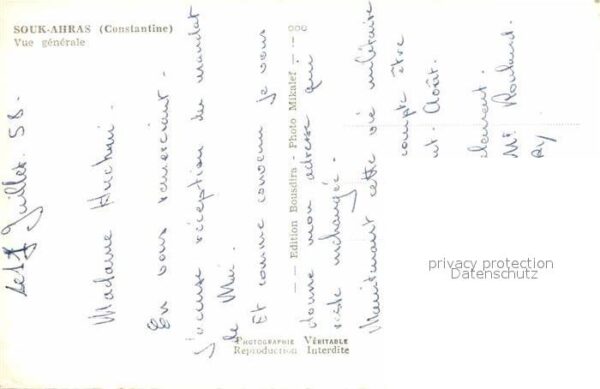 SOUK-AHRAS (Constantine)
Vue générale
Juillet. 58.
Madame
En vous remerciant.
J'accuse réception du mandat
de Mai.
Et comme convenu je vous
donne mon adresse qui
reste inchangée.
Maintenant cette vie militaire
compte être
Août.
Mr
— — Edition Bousdira - Photo Mikalef — —
PHOTOGRAPHIE VÉRITABLE
Reproduction Interdite
privacy protection
Datenschutz